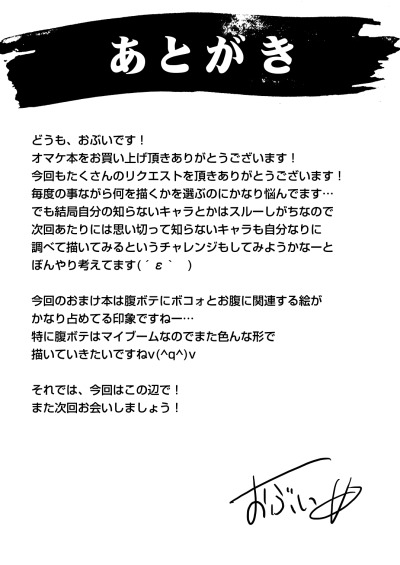 あとがき
どうも、おぶいです！
オマケ本をお買い上げ頂きありがとうございます！
今回もたくさんのリクエストを頂きありがとうございます！
毎度の事ながら何を描くかを選ぶのにかなり悩んでます…
でも結局自分の知らないキャラとかはスルーしがちなので
次回あたりには思い切って知らないキャラも自分なりに
調べて描いてみるというチャレンジもしてみようかなーと
ぼんやり考えてます(´ε｀ )
今回のおまけ本は腹ボテにボコォとお腹に関連する絵が
かなり占めてる印象ですねー…
特に腹ボテはマイブームなのでまた色んな形で
描いていきたいですねv(^q^)v
それでは、今回はこの辺で！
また次回お会いしましょう！
おぶい